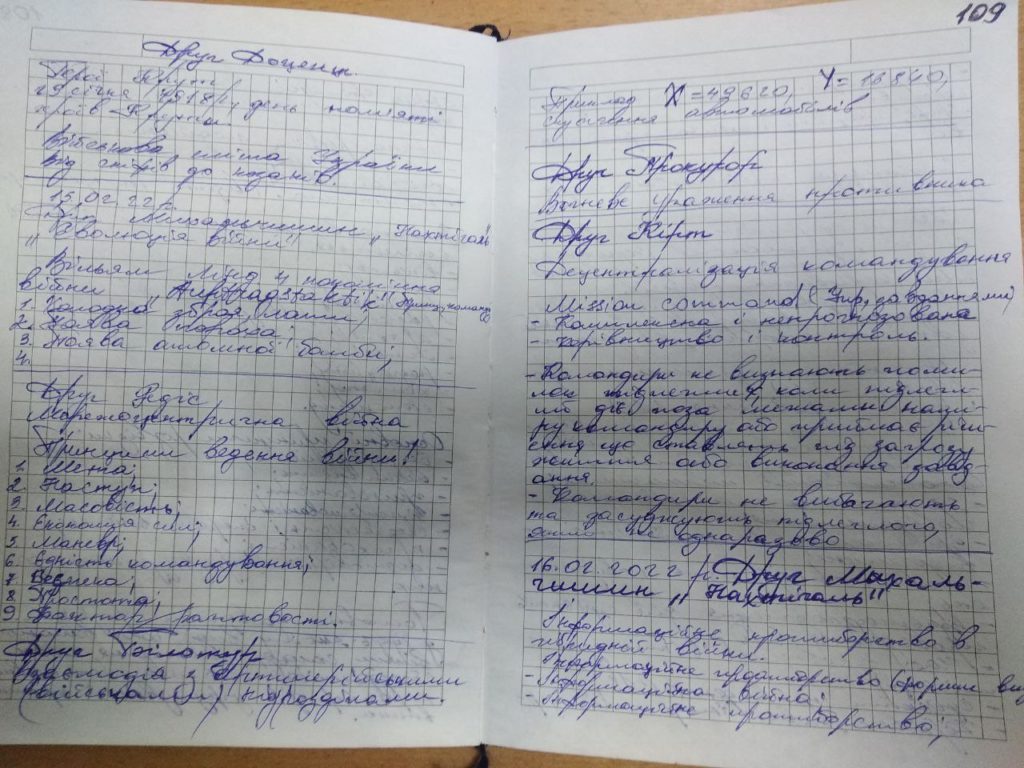 Друг Доцент
Герої Крут
29 січня 1918 р., день пам'яті
героїв Крут
Військова еліта України
від скіфів до козаків.
15.02.22 р.
Друг Михальчишин „Нахтігаль"
„Еволюція війни"
Вільям Лінд 4 покоління
війни „Ауфтрагстактік"
1. Холодна зброя,
2. Поява пороха;
3. Поява атомної бомби;
4.
Друг Редіс
Мережоцентрична війна
Принципи ведення війни!
1. Мета;
2. Наступ;
3. Масовість;
4. Економія сил;
5. Маневр;
6. Єдність командування;
7. Безпека;
8. Простота;
9. Фактор раптовості.
Друг
Взаємодія з артилерійськими
(військами) підрозділами.
109
Приклад X = 49620, Y = 16840,
скупчення автомобілів
Друг Прокурор
Вогневе ураження противника
Друг Кірт
Децентралізація командування
Mission command (Упр. завданнями)
- Комплексна і непрогнозована
- керівництво і контроль.
- Командири не визнають поми-
лок підлеглих коли підлег-
лий діє поза межами намі-
ру командиру або приймає ріш-
ення що ставить під загрозу
життя або виконання завд-
ання.
- Командири не вибачають
та засуджують підлеглого,
одноразово
16.02.2022 р. Друг Михаль-
чишин „Нахтігаль"
Інформаційне протиборство в
гібридній війні.
- Інформаційне протиборство (форми
- Інформаційна війна;
- Інформаційне протиборство;